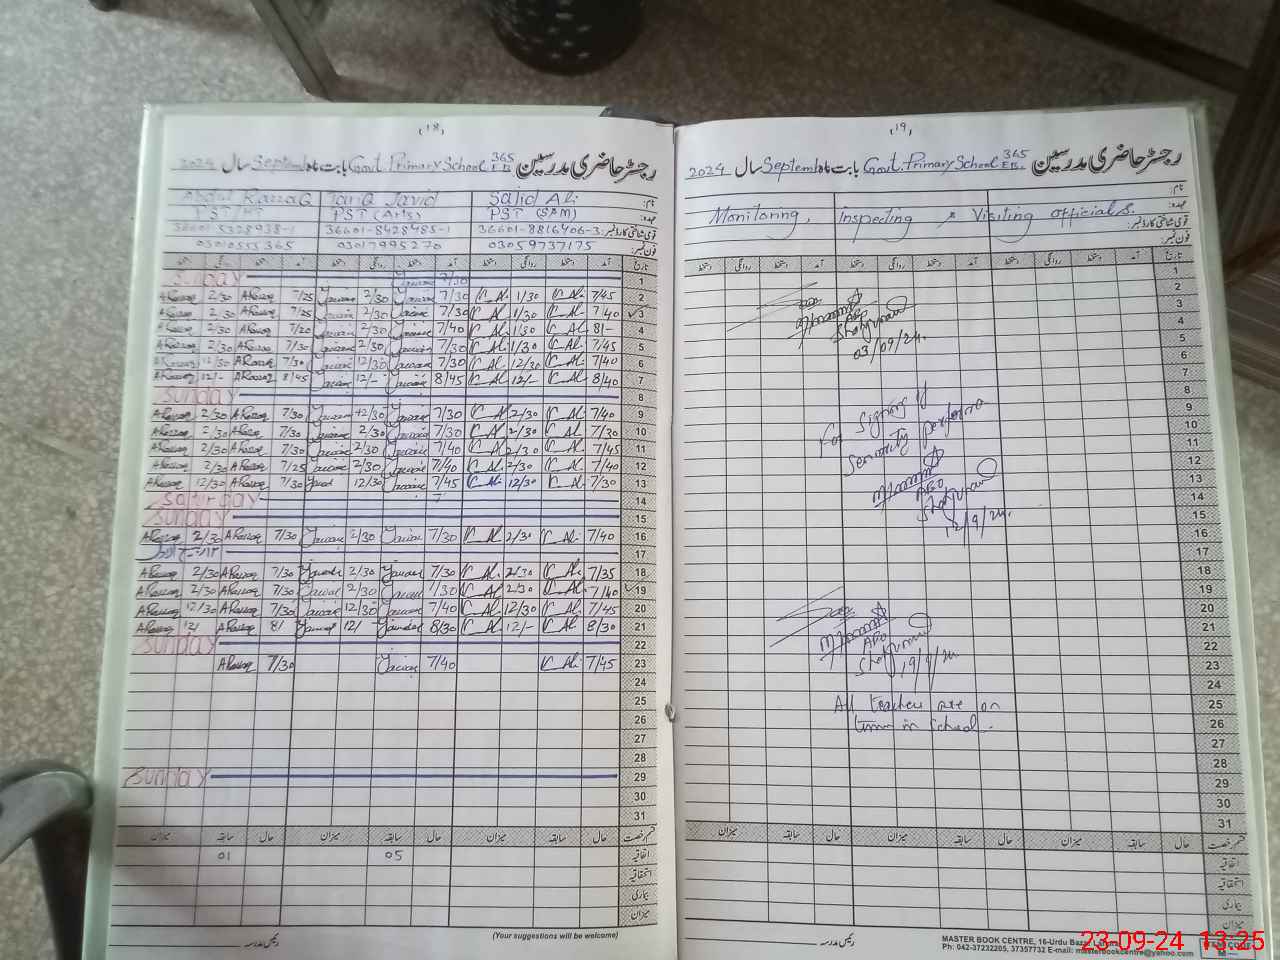 (18)
رجسٹر حاضری مدرسین Govt. Primary School 365 E.B. بابت ماہ September سال 2024
نام: Sajid Ali Tariq Javid Abdul Razzaq
عہدہ: PST (SAM) PST (Arts) PST/HT
قومی شناختی کارڈ نمبر: 36601-8816406-3 36601-8428485-1 36601-5328938-1
فون نمبر: 03059737175 03017995270 03010555365
تاریخ آمد دستخط روانگی دستخط آمد دستخط روانگی دستخط آمد دستخط روانگی دستخط
1 7/30 Sunday
2 7/45 Ali 1/30 Ali 7/30 2/30 7/25 ARazzaq 2/30 ARazzaq
3 7/40 Ali 1/30 Ali 7/30 2/30 7/30 ARazzaq 2/30 ARazzaq
4 8/- Ali 1/30 Ali 7/40 2/30 7/20 ARazzaq 2/30 ARazzaq
5 7/45 Ali 1/30 Ali 7/30 2/30 7/30 ARazzaq 2/30 ARazzaq
6 7/40 Ali 12/30 Ali 7/30 12/30 7/30 ARazzaq 12/30 ARazzaq
7 8/40 Ali 12/- Ali 8/45 12/- 8/45 ARazzaq 12/- ARazzaq
8 Sunday
9 7/40 Ali 2/30 Ali 7/30 2/30 7/30 ARazzaq 2/30 ARazzaq
10 7/30 Ali 2/30 Ali 7/30 2/30 7/30 ARazzaq 2/30 ARazzaq
11 7/45 Ali 2/30 Ali 7/40 2/30 7/30 ARazzaq 2/30 ARazzaq
12 7/40 Ali 2/30 Ali 7/40 2/30 7/25 ARazzaq 2/30 ARazzaq
13 7/30 Ali 12/30 Ali 7/45 12/30 7/30 ARazzaq 12/30 ARazzaq
14 Saturday
15 Sunday
16 7/40 Ali 2/30 Ali 7/30 2/30 7/30 ARazzaq 2/30 ARazzaq
17
18 7/35 Ali 2/30 Ali 7/30 2/30 7/30 ARazzaq 2/30 ARazzaq
19 7/40 Ali 2/30 Ali 7/30 2/30 7/30 ARazzaq 2/30 ARazzaq
20 7/45 Ali 12/30 Ali 7/40 12/30 7/30 ARazzaq 12/30 ARazzaq
21 8/30 Ali 12/- Ali 8/30 12/- 8/ ARazzaq 12/ ARazzaq
22 Sunday
23 7/45 Ali 7/40 7/30 ARazzaq
24
25
26
27
28
29 Sunday
30
31
قسم رخصت حال سابقہ میزان حال سابقہ میزان حال سابقہ میزان
اتفاقیہ 05 01
استحقاقیہ
بیماری
میزان
(Your suggestions will be welcome)
رئیس مدرسہ
(19)
رجسٹر حاضری مدرسین Govt. Primary School 365 E.B. بابت ماہ September سال 2024
نام:
عہدہ:
Monitoring, Inspecting & Visiting officials.
قومی شناختی کارڈ نمبر:
فون نمبر:
تاریخ آمد دستخط روانگی دستخط آمد دستخط روانگی دستخط آمد دستخط روانگی دستخط
1
2
3
4
5
6
7
8
9
10
11
12
13
14
15
16
17
18
19
20
21
22
23
24
25
26
27
28
29
30
31
AEO
03/09/24.
For Signing of
Seniority performa
AEO
12/9/24.
AEO
19/9/24
All teachers are on
time in School.
قسم رخصت حال سابقہ میزان حال سابقہ میزان حال سابقہ میزان
اتفاقیہ
استحقاقیہ
بیماری
میزان
رئیس مدرسہ
MASTER BOOK CENTRE, 16-Urdu Bazar Lahore
Ph: 042-37232205, 37357732 E-mail: masterbookcentre@yahoo.com
23-09-24 13:25